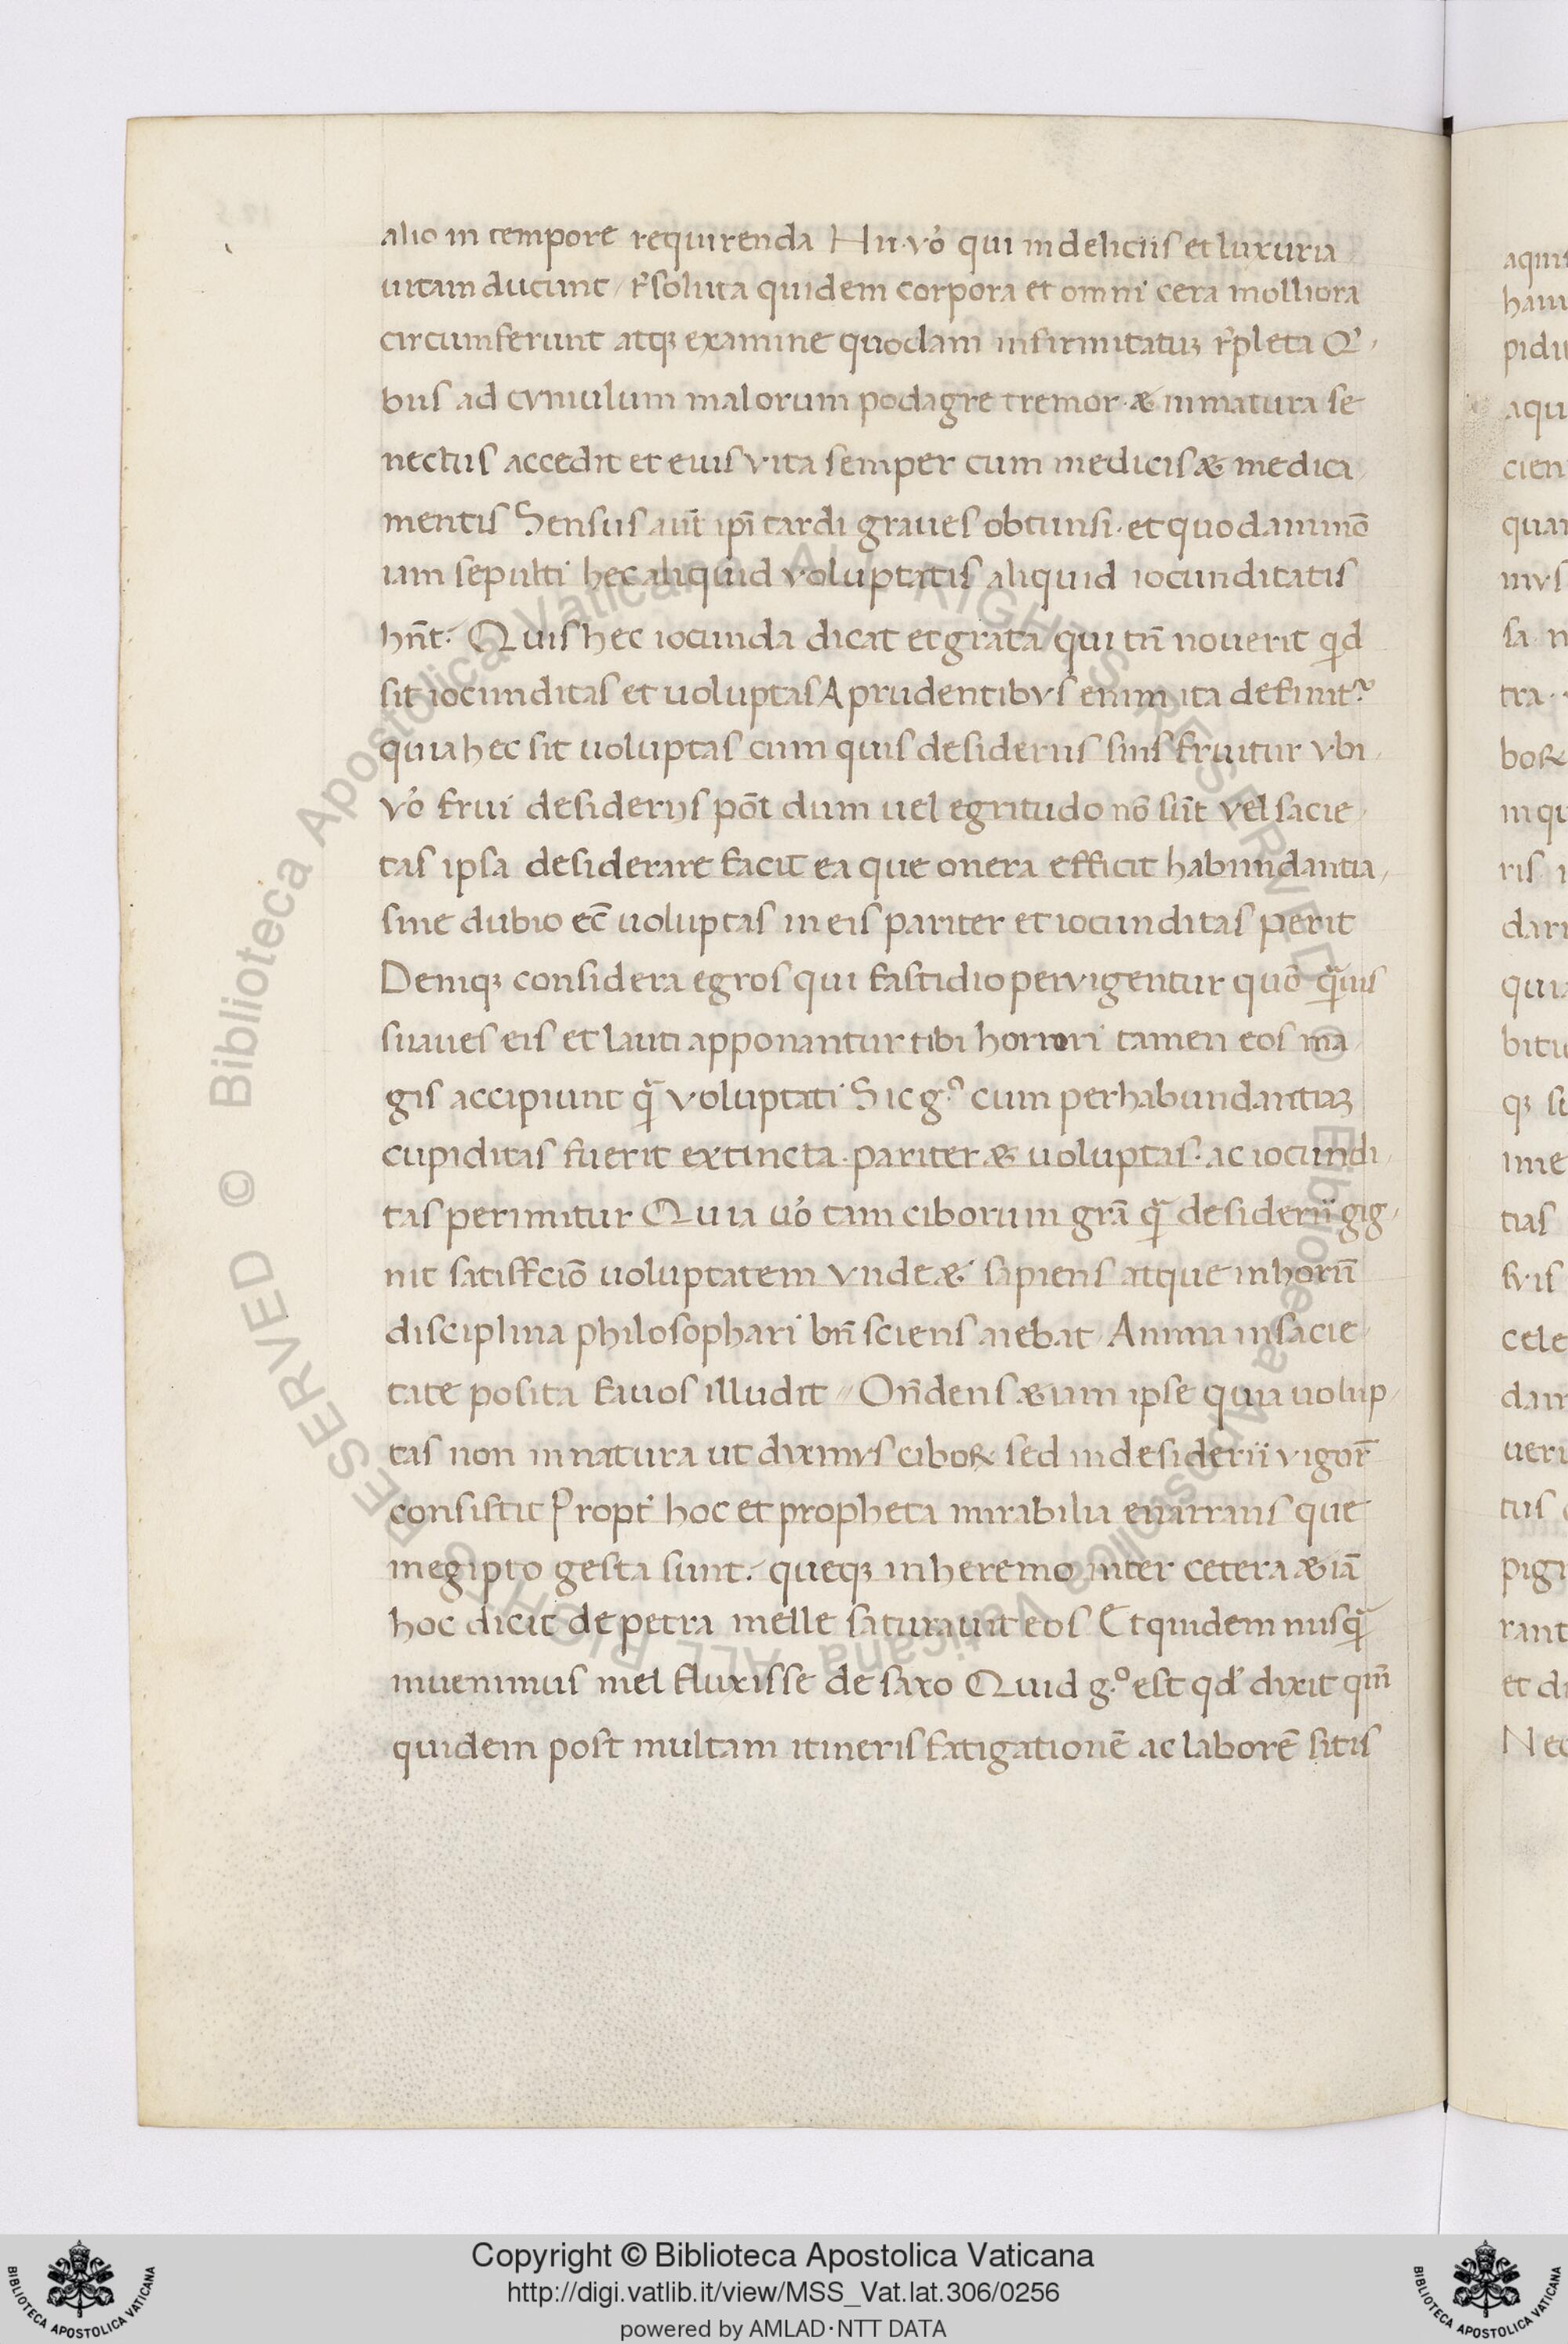 alio in tempore requirenda Hii·vo᷎ qui in deliciis et luxuria
uitam ducunt / r̃soluta quidem corpora et omni cera molliora
circumferunt atqꝫ examine quodam infirmitatuꝫ r̃pleta Qⁱ
bus ad cvmulum malorum podagre tremor·& inmatura se
nectus accedit et euis vita semper cum medicis & medica
mentis Sensus aut̃ ip̃i tardi graues obtunsi· et quodammō
iam sepulti hec aliquid voluptatis aliquid iocunditatis
hñt· Quis hec iocunda dicat et grata qui tñ nouerit qͥd
sit iocunditas et uoluptas A prudentibvs enim ita definitᷣ
quia hec sit uoluptas cum quis desideriis suis fruitur vbi
vo᷎ frui desideriis põt dum uel egritudo nõ sũt vel sacie
tas ipsa desiderare facit ea que onera efficit habundantia,
sine dubio ec̃ uoluptas in eis pariter et iocunditas perit
Deniqꝫ considera egros qui fastidio pervigentur quõ qͣ̃uis
suaues eis et lauti apponantur cibi horrori tamen eos ma
gis accipiunt qͣ̃ voluptati Sic g·º cum per habundantiaꝫ
cupiditas fuerit extincta·pariter & uoluptas· ac iocundi
tas perimitur Quia uo᷎ tam ciborum grã qͣ̃ desiderii gig
nit satisf̃ciõ uoluptatem vnde & sapiens atque in horũ
disciplina philosophari bñ sciens aiebat Anima in sacie
tate posita fauos illudit // Oñdens & iam ipse quia uolup
tas non in natura ut diximvs ciboꝝ sed in desiderii vigor̃
consistit Propt̃ hoc et propheta mirabilia enarrans que
in egipto gesta sunt· queqꝫ in heremo inter cetera & iã
hoc dicit de petra melle saturauit eos Et quidem nusqͣ̃
inuenimus mel fluxisse de saxo Quid g·º est qd̓ dixit qm̃
quidem post multam itineris fatigationẽ ac laborẽ sitis
Copyright © Biblioteca Apostolica Vaticana
http://digi.vatlib.it/view/MSS_Vat.lat.306/0256
powered by AMLAD·NTT DATA